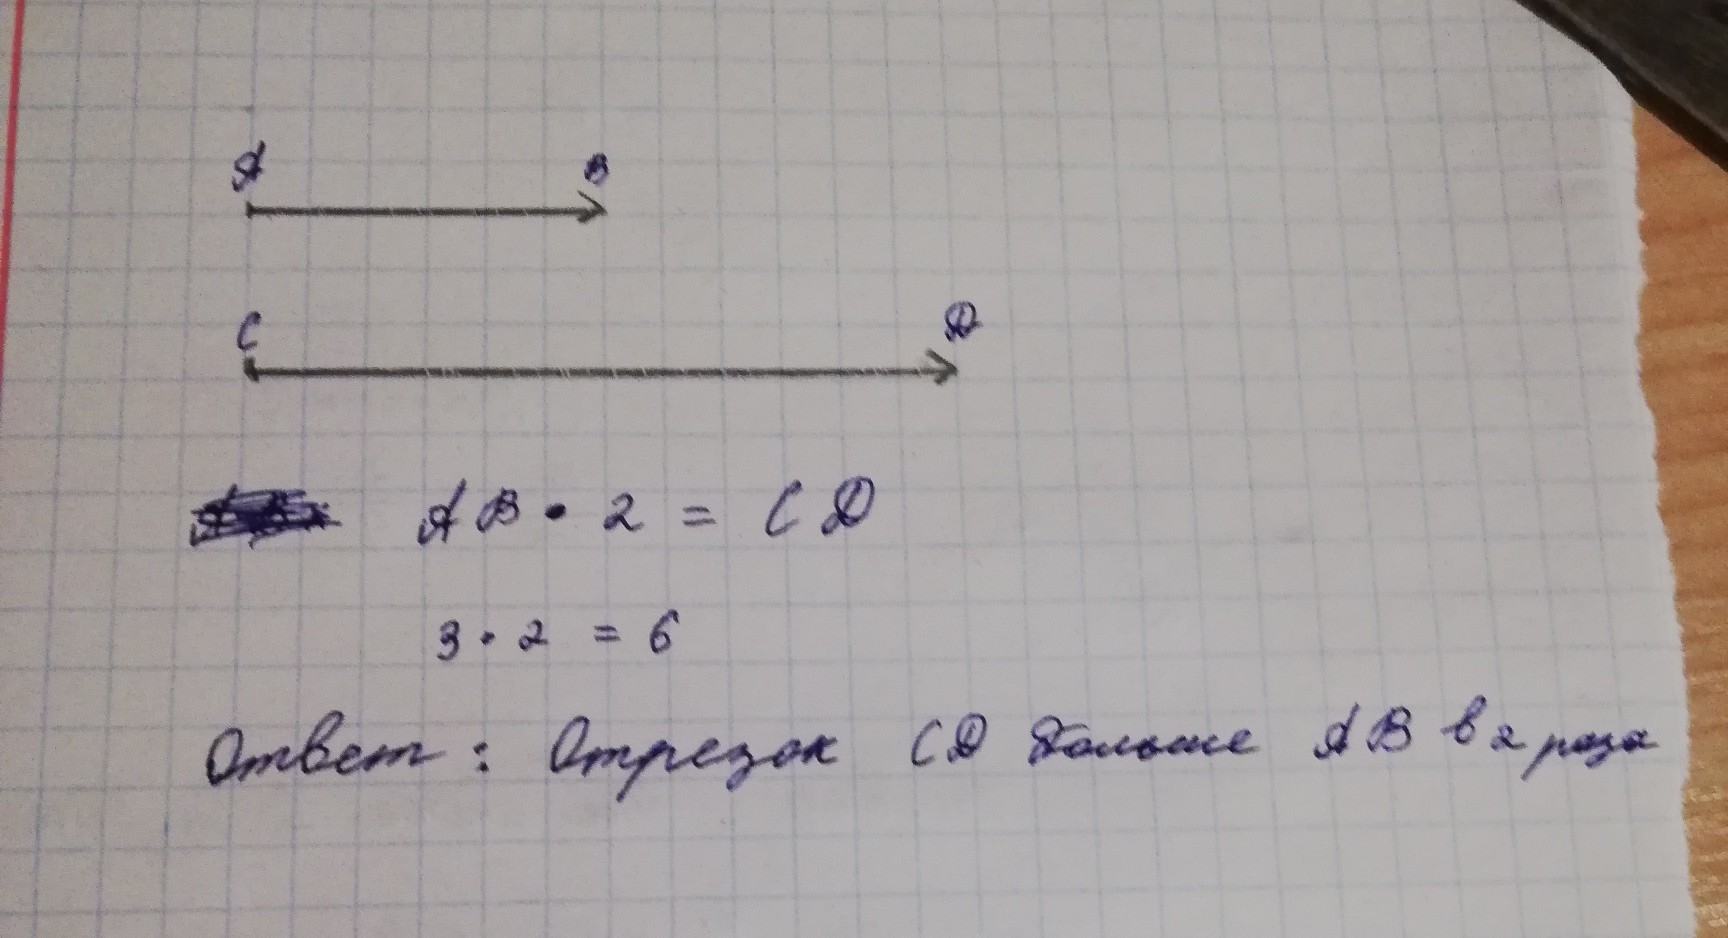 A B
C D
AB · 2 = CD
3 · 2 = 6
Ответ: Отрезок CD больше AB в 2 раза